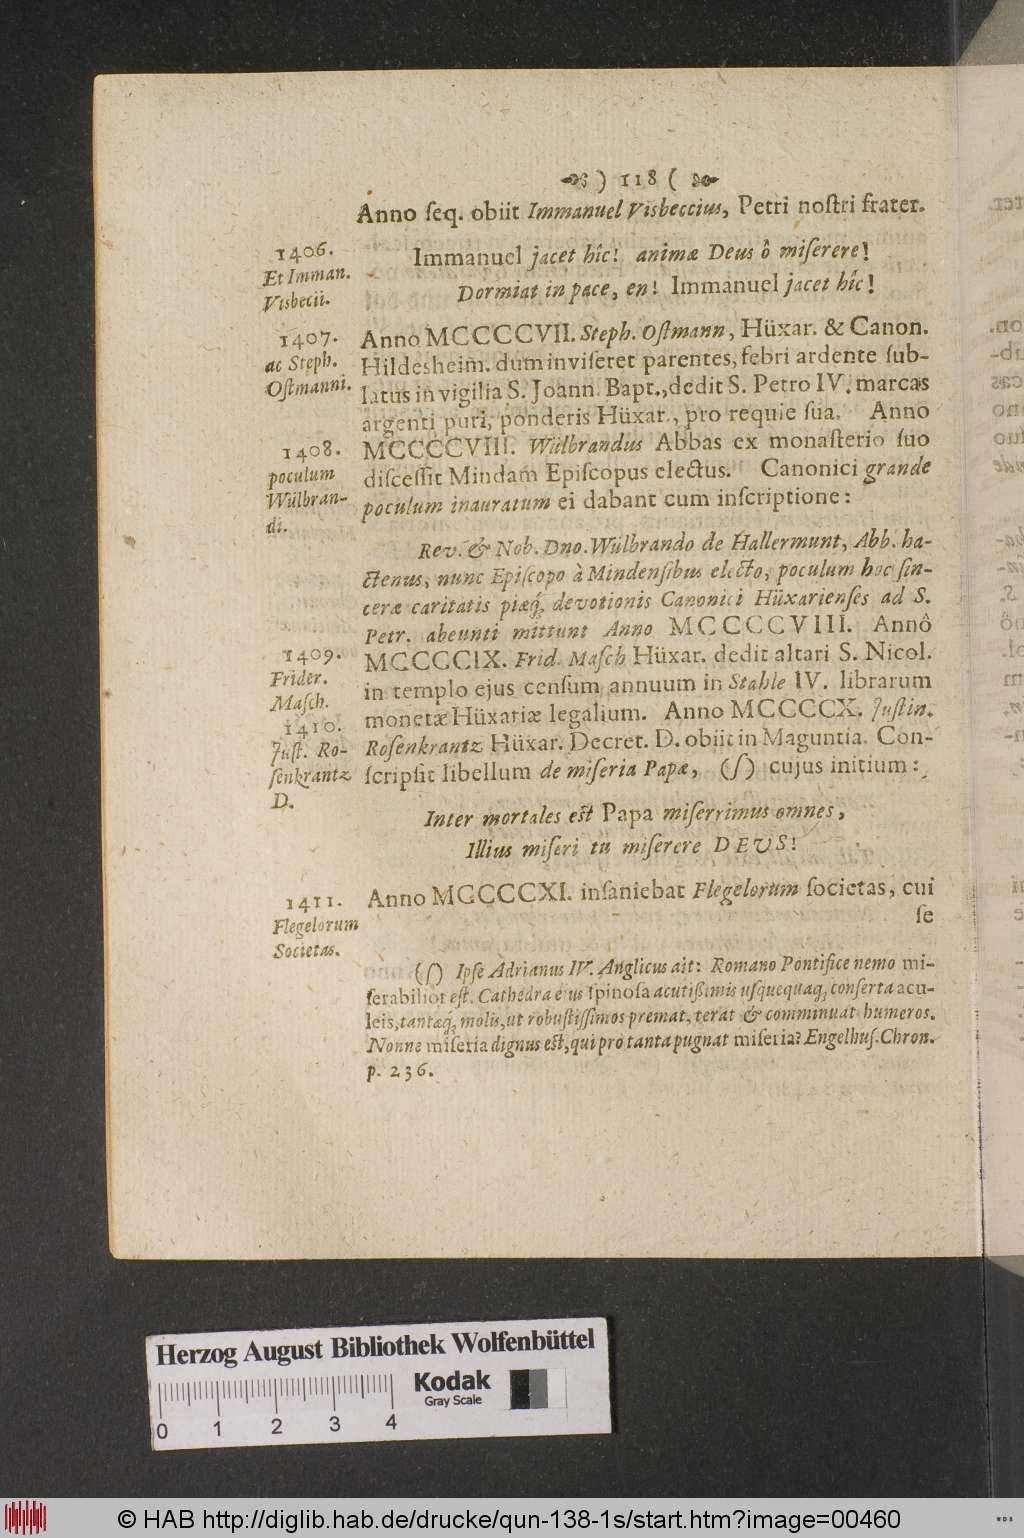 ) 118 (
Anno ſeq. obiit Immanuel Visbeccius, Petri noſtri frater.
1406.
Et Imman.
Visbecii.
Immanuel jacet hîc! animæ Deus ô miſerere!
Dormiat in pace, en! Immanuel jacet hîc!
1407.
ac Steph.
Oſtmanni.
Anno MCCCCVII. Steph. Oſtmann, Hüxar. & Canon.
Hildesheim. dum inviſeret parentes, febri ardente ſub-
latus in vigilia S. Joann. Bapt., dedit S. Petro IV. marcas
argenti puri, ponderis Hüxar., pro requie ſua. Anno
1408.
poculum
Wülbran-
di.
MCCCCVIII. Wülbrandus Abbas ex monaſterio ſuo
diſceſſit Mindam Epiſcopus electus. Canonici grande
poculum inauratum ei dabant cum inſcriptione:
Rev. & Nob. Dno. Wülbrando de Hallermunt, Abb. ha-
ctenus, nunc Epiſcopo à Mindenſibus electo, poculum hoc ſin-
ceræ caritatis piæq́; devotionis Canonici Hüxarienſes ad S.
Petr. abeunti mittunt Anno MCCCCVIII. Annô
1409.
Frider.
Maſch.
MCCCCIX. Frid. Maſch Hüxar. dedit altari S. Nicol.
in templo ejus cenſum annuum in Stahle IV. librarum
monetæ Hüxariæ legalium. Anno MCCCCX. Juſtin.
1410.
Juſt. Ro-
ſenkrantz
D.
Roſenkrantz Hüxar. Decret. D. obiit in Maguntia. Con-
ſcripſit libellum de miſeria Papæ, (ſ) cujus initium:
Inter mortales eſt Papa miſerrimus omnes,
Illius miſeri tu miſerere DEUS!
1411.
Flegelorum
Societas.
Anno MCCCCXI. inſaniebat Flegelorum ſocietas, cui
ſe
(ſ) Ipſe Adrianus IV. Anglicus ait: Romano Pontifice nemo mi-
ſerabilior eſt. Cathedra ejus ſpinoſa acutißimis uſquequaq; conſerta acu-
leis, tantæq́; molis, ut robuſtiſſimos premat, terat & comminuat humeros.
Nonne miſeria dignus eſt, qui pro tanta pugnat miſeria? Engelhuſ. Chron.
p. 236.
Herzog August Bibliothek Wolfenbüttel
Kodak
Gray Scale
0 1 2 3 4
© HAB http://diglib.hab.de/drucke/qun-138-1s/start.htm?image=00460